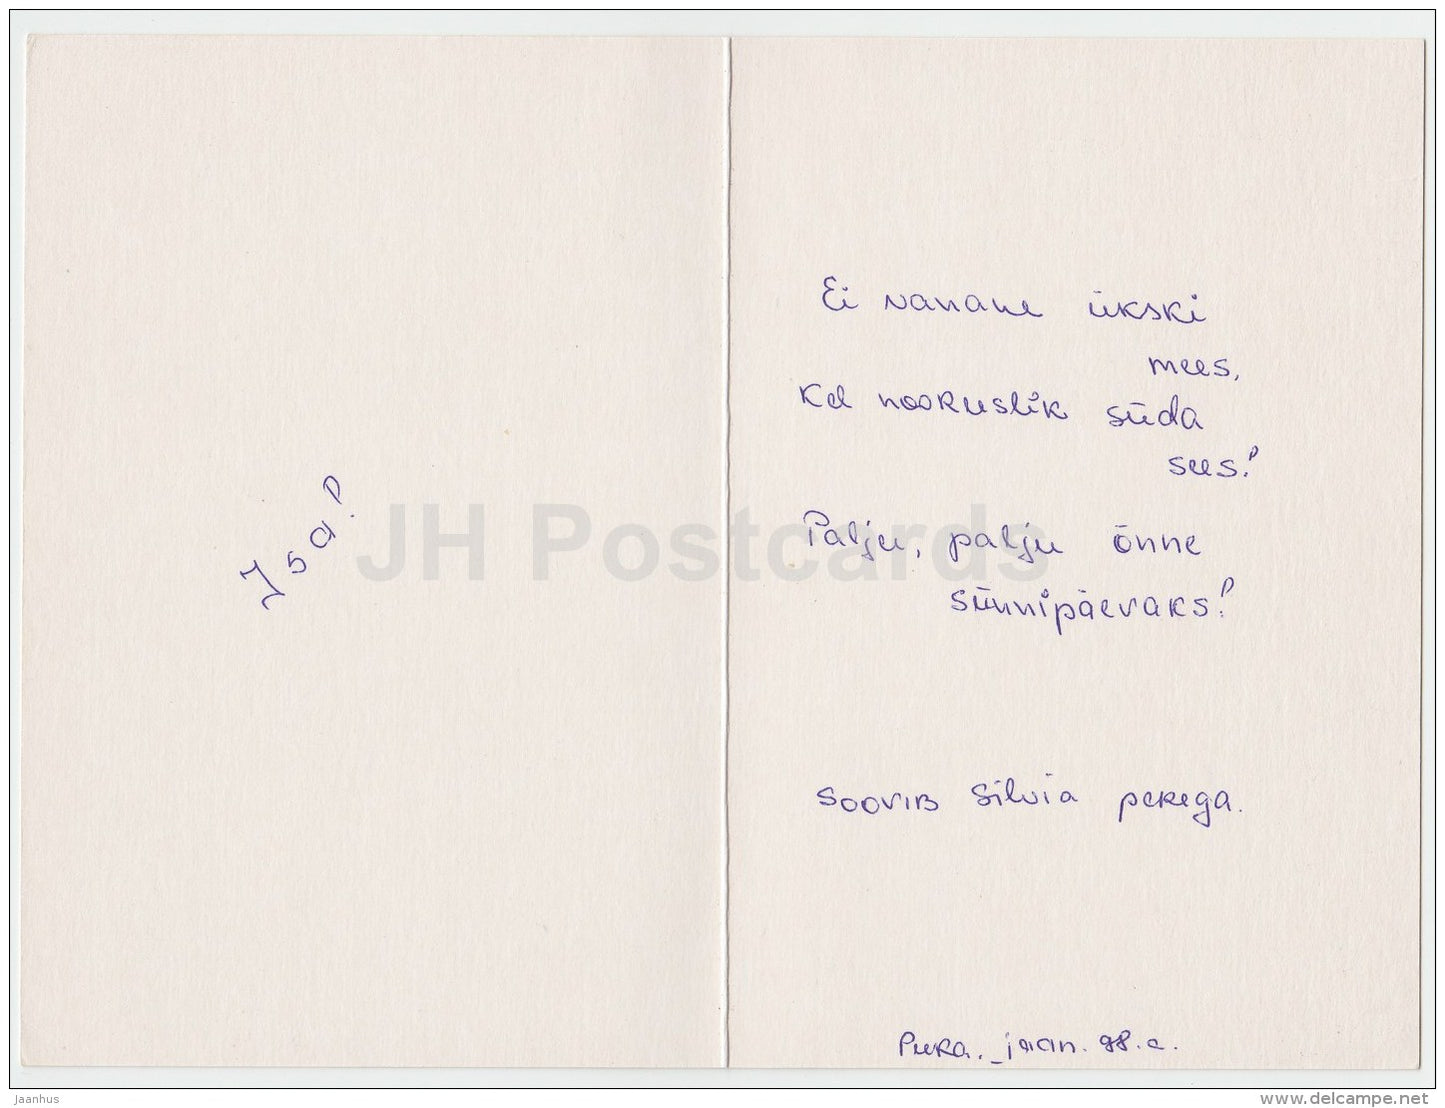 Isa!
Ei vanane ükski
mees,
kel nooruslik süda
sees!
Palju, palju õnne
sünnipäevaks!
soovib Silvia perega.
Puka. jaan. 98.a.
JH Postcards
Jaanhus
www.delcampe.net